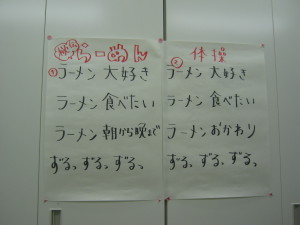 らーめん
① ラーメン 大好き
ラーメン 食べたい
ラーメン 朝から晩まで
ずるっ ずるっ ずるっ
体操
② ラーメン 大好き
ラーメン 食べたい
ラーメン おかわり
ずるっ ずるっ ずるっ